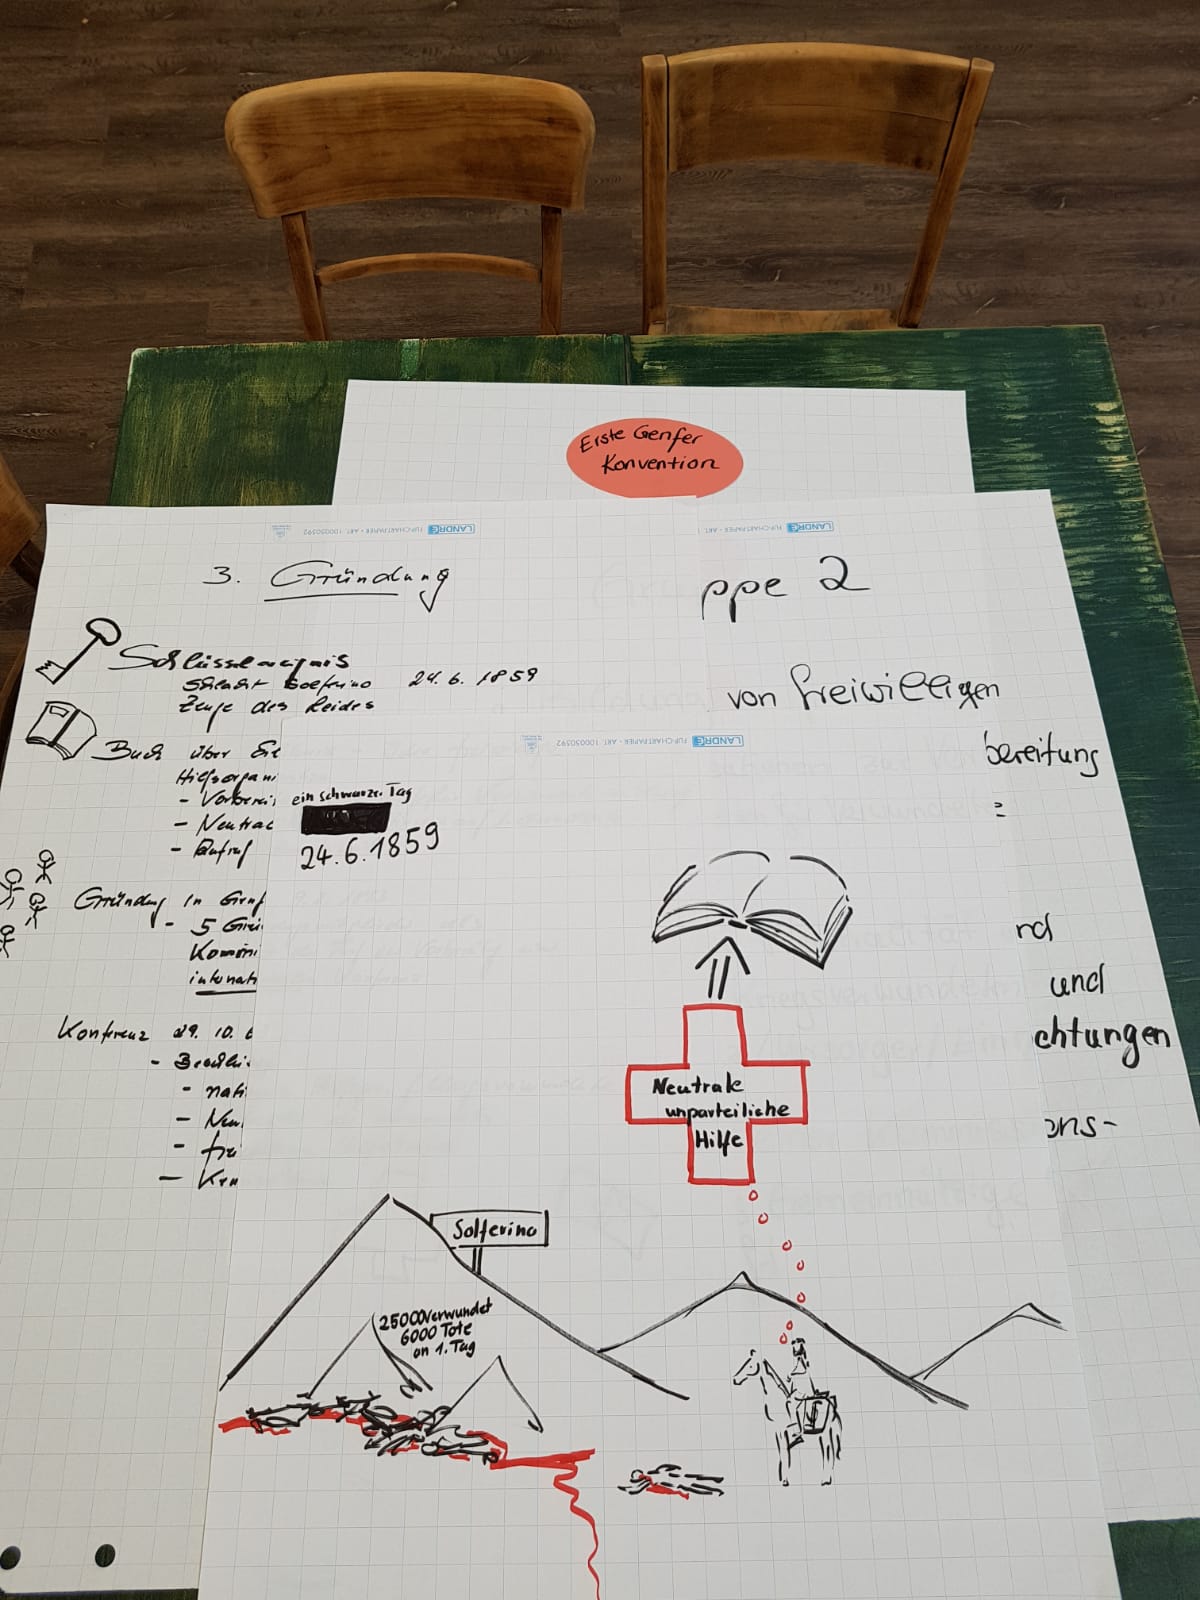 Erste Genfer
Konvention
LANDRÉ FLIP-CHARTPAPIER • ART. 100050592
LANDRÉ FLIP-CHARTPAPIER • ART. 1
3. Gründung
Schlüsselereignis
Schlacht Solferino 24.6.1859
Zeuge des Leides
Buch über
Hilfsorgani
- Vorberei
- Neutral
- Aufruf
Gründung in Genf
- 5
Komm
internati
Konferenz 29. 10. 6
- Beschlü
- nati
- Neu
- frei
- Kra
ppe 2
von freiwilligen
bereitung
:
nd
und
chtungen
ons-
LANDRÉ FLIP-CHARTPAPIER • ART. 100050592
ein schwarzer Tag
24.6.1859
Neutrale
unparteiliche
Hilfe
Solferino
25000 verwundet
6000 Tote
an 1. Tag